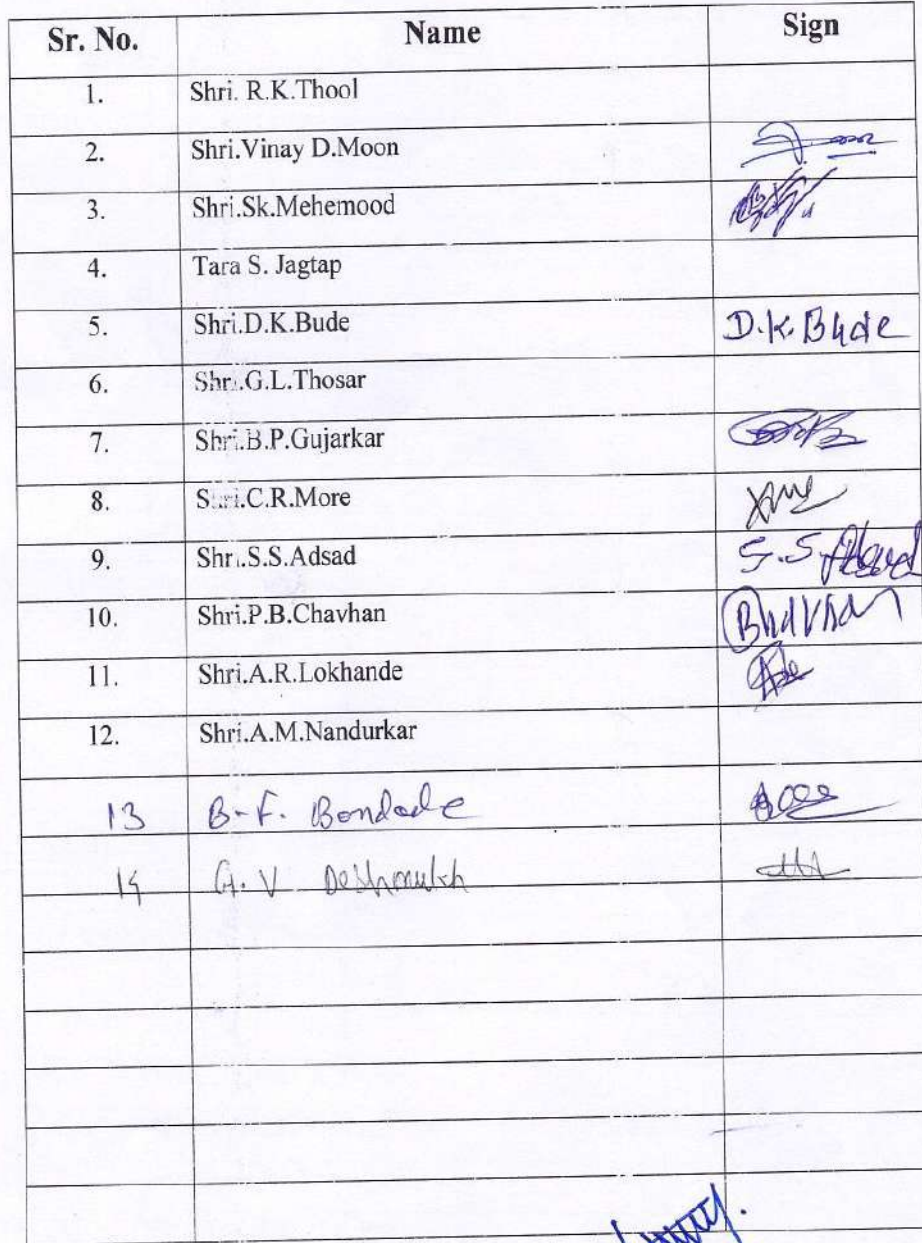 Sr. No. Name Sign
1. Shri. R.K.Thool
2. Shri.Vinay D.Moon
3. Shri.Sk.Mehemood
4. Tara S. Jagtap
5. Shri.D.K.Bude D.K.Bude
6. Shri.G.L.Thosar
7. Shri.B.P.Gujarkar
8. Shri.C.R.More
9. Shri.S.S.Adsad S.S.
10. Shri.P.B.Chavhan
11. Shri.A.R.Lokhande
12. Shri.A.M.Nandurkar
13 B.F. Bondade
14 G. V Deshmukh